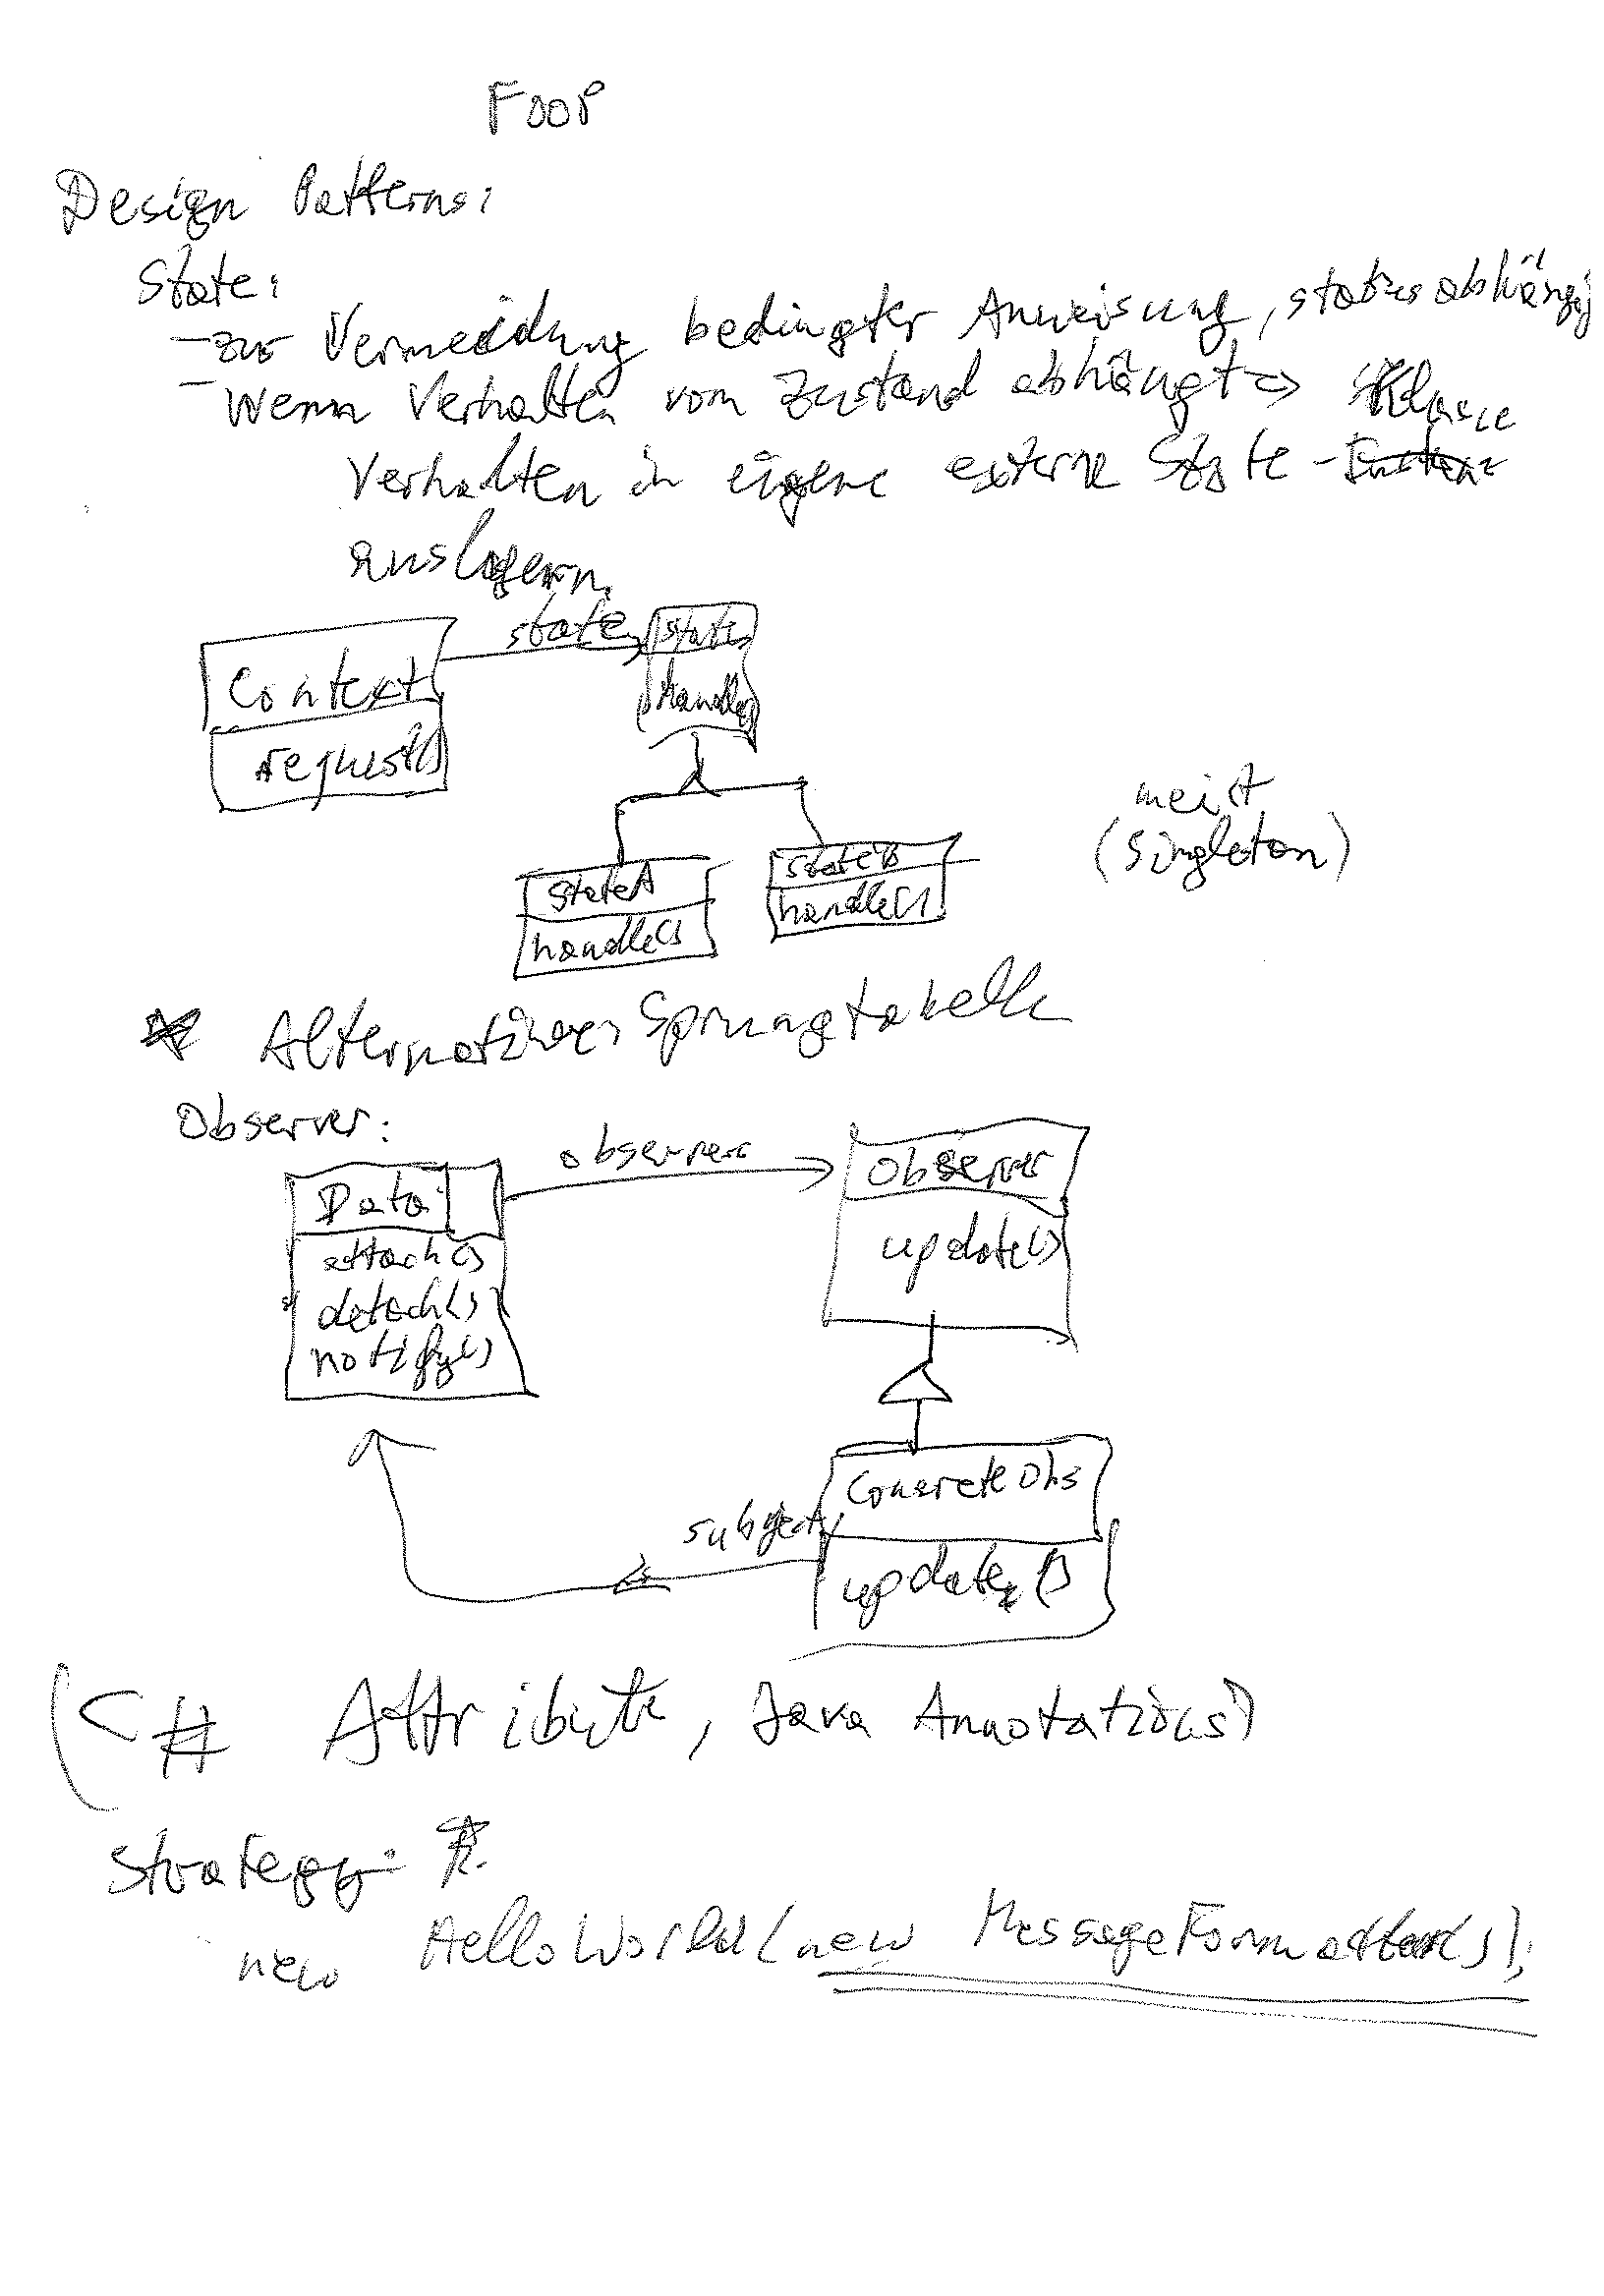 FOOP
Design Patterns:
State:
- zur Vermeidung bedingter Anweisung, statusabhängig
- Wenn Verhalten vom Zustand abhängt => Klasse
Verhalten in eigene externe State -
auslagern.
state
State
Context
handle
request()
meist
(Singleton)
StateA
StateB
handle()
handle()
Alternative: Sprungtabelle
Observer:
observers
Observer
Data
attach()
update()
detach()
notify()
ConcreteObs
subject
update()
(C# Attribute, Java Annotations)
Strategy:
new HelloWorld(new MessageFormatter());